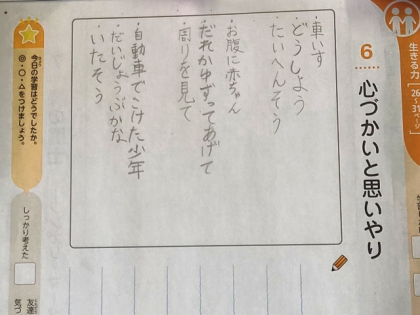 生きる力
[26~31ページ]
6
心づかいと思いやり
・車いす
どうしよう
たいへんそう
・お腹に赤ちゃん
だれかゆずってあげて
・周りを見て
・自動車でこけた少年
・だいじょうぶかな
・いたそう
今日の学習はどうでしたか。
◎・○・△をつけましょう。
しっかり考えた
友達
気づ